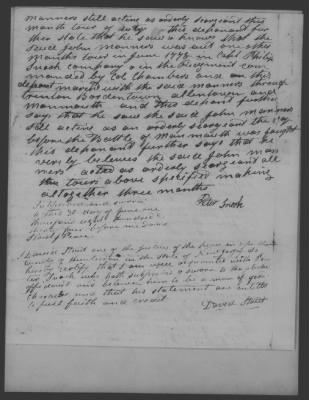 manners still acting as orderly sergeant this
month tour of duty this deponant fur
ther state that he saw & knows that the
said John manners was out one other
months tour in June 1778 in Capt Philip
Snook company & in the Regement com
manded by Col Chambers and on this
deponant marched with the said manners through
Trenton Bordentown allentown and
monmouth and this deponant further
says that he saw the said John manners
still acting as an orderly sergeant the day
before the Battle of Monmouth was faught
this deponant further says that he
verily believes the said John man
ners acted as orderly sergeant all
the tours above specified making
altogether three months
Peter Snook
Subscribed and sworn
to this 30 day of June one
thousand eight hundred &
thirty four before me
David Stout one of the justices of the peace in & for the
county of Hunterdon in the state of New Jersey do
hereby certify that I am well acquainted with Pe
ter Snook who hath subscribed & sworn to the above
affidavit and believe him to be a man of good
character and that his statement are entitled
to full faith and credit
David Stout